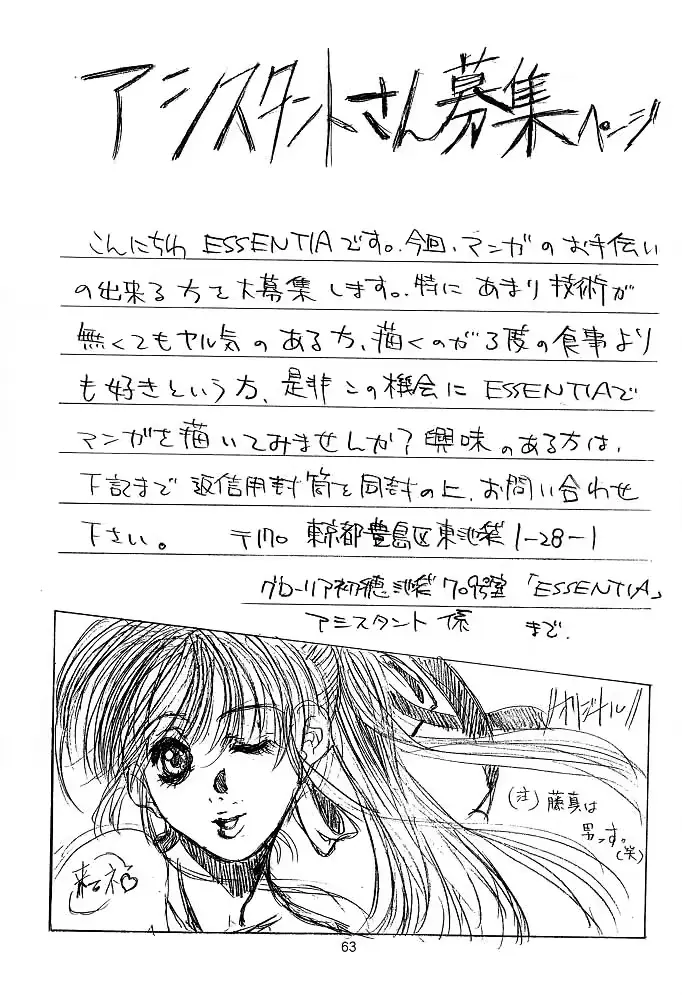 アシスタントさん募集ページ
こんにちわ ESSENTIAです。今回、マンガのお手伝い
の出来る方を大募集します。特にあまり技術が
無くてもヤル気のある方、描くのが3度の食事より
も好きという方、是非この機会にESSENTIAで
マンガを描いてみませんか?興味のある方は、
下記まで返信用封筒を同封の上、お問い合わせ
下さい。 〒170 東京都豊島区東池袋1-28-1
グローリア初穂池袋709号室「ESSENTIA」
アシスタント係 まで。
オリジナル
(注)藤真は
男っす。
(笑)
63